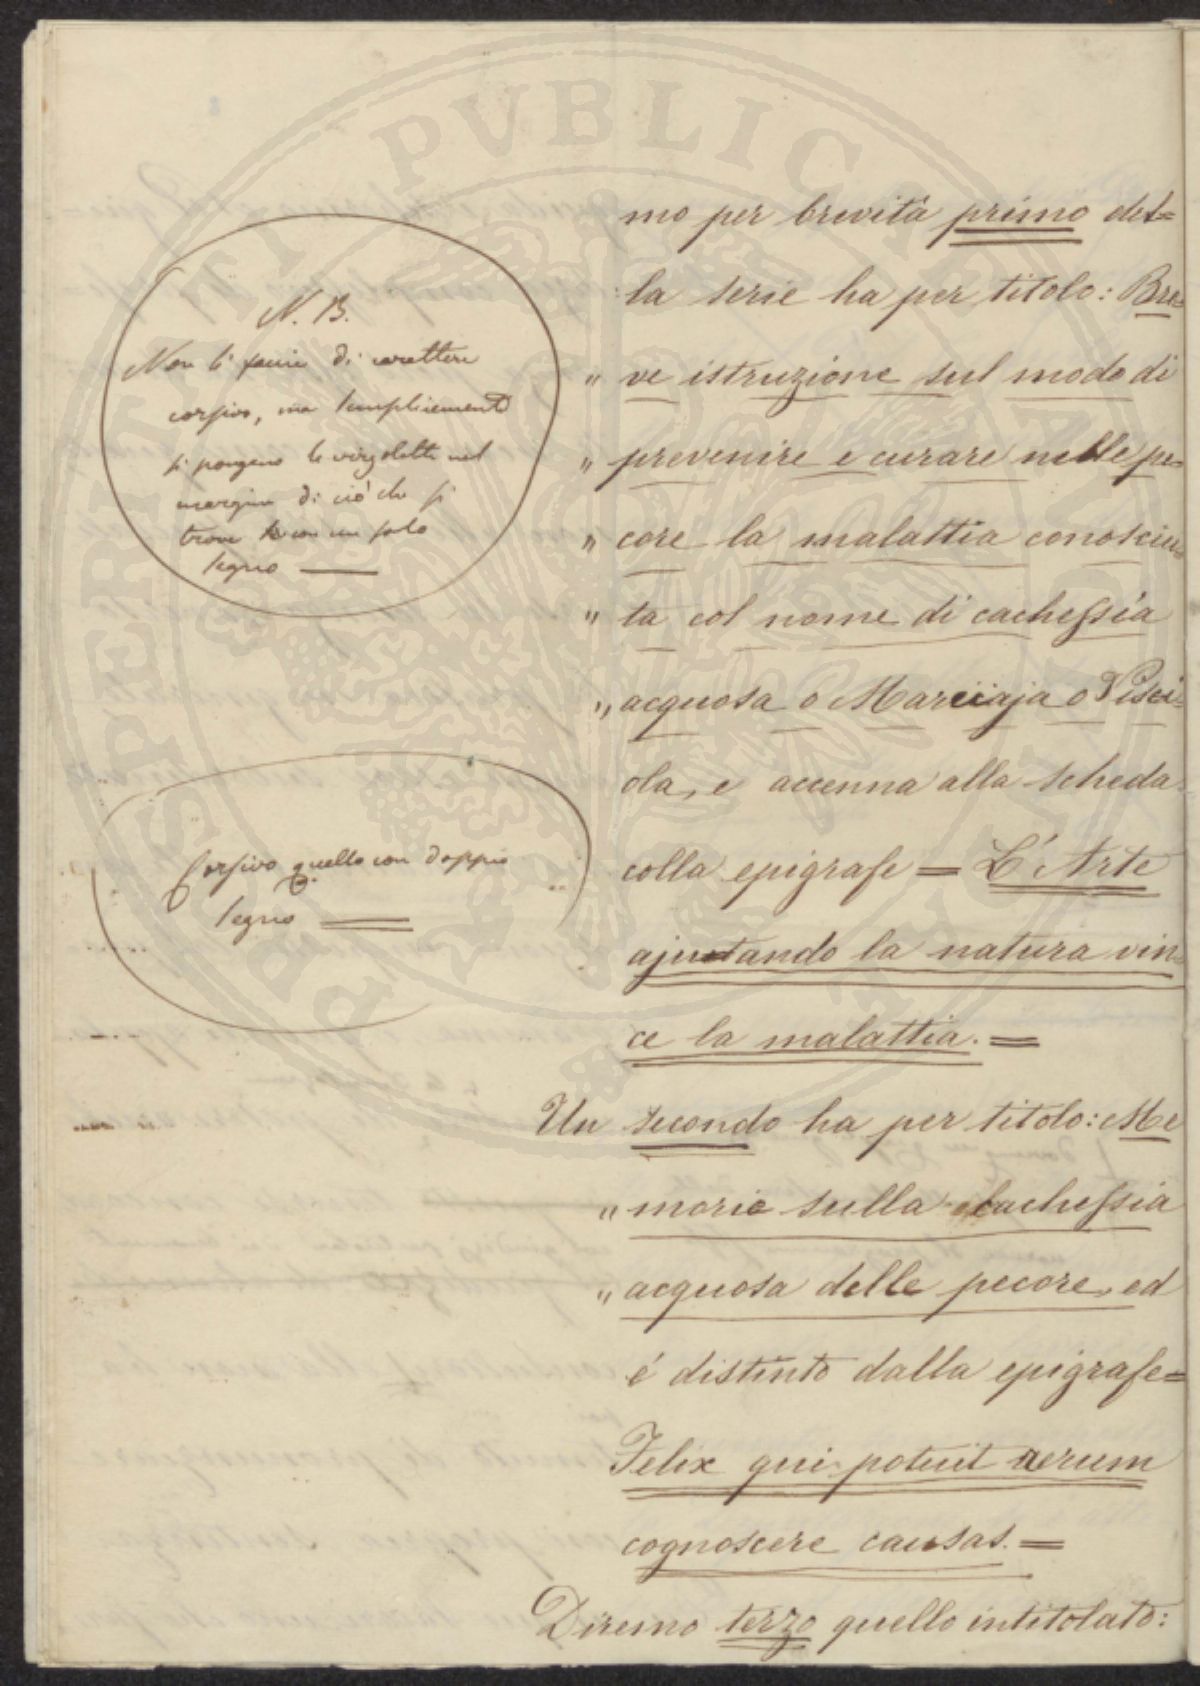 mo per brevità primo del=
la serie ha per titolo: Bre=
" ve istruzione sul modo di
" prevenire e curare nelle pe=
" core la malattia conosciu=
" ta col nome di cachessia
" acquosa o Marciaja o Visci=
ola, e accenna alla scheda
colla epigrafe = L'Arte
ajutando la natura vin=
ce la malattia. =
Un secondo ha per titolo: Me
" morie sulla Cachessia
" acquosa delle pecore, ed
é distinto dalla epigrafe =
Felix qui potuit rerum
cognoscere causas. =
Diremo terzo quello intitolato:
N. B.
Non si faccia di carattere
corsivo, ma semplicemente
si pongano le virgolette nel
margine di ciò che si
trova con un solo
segno —
Corsivo quello con doppio
segno =
PERITI PVBLICE